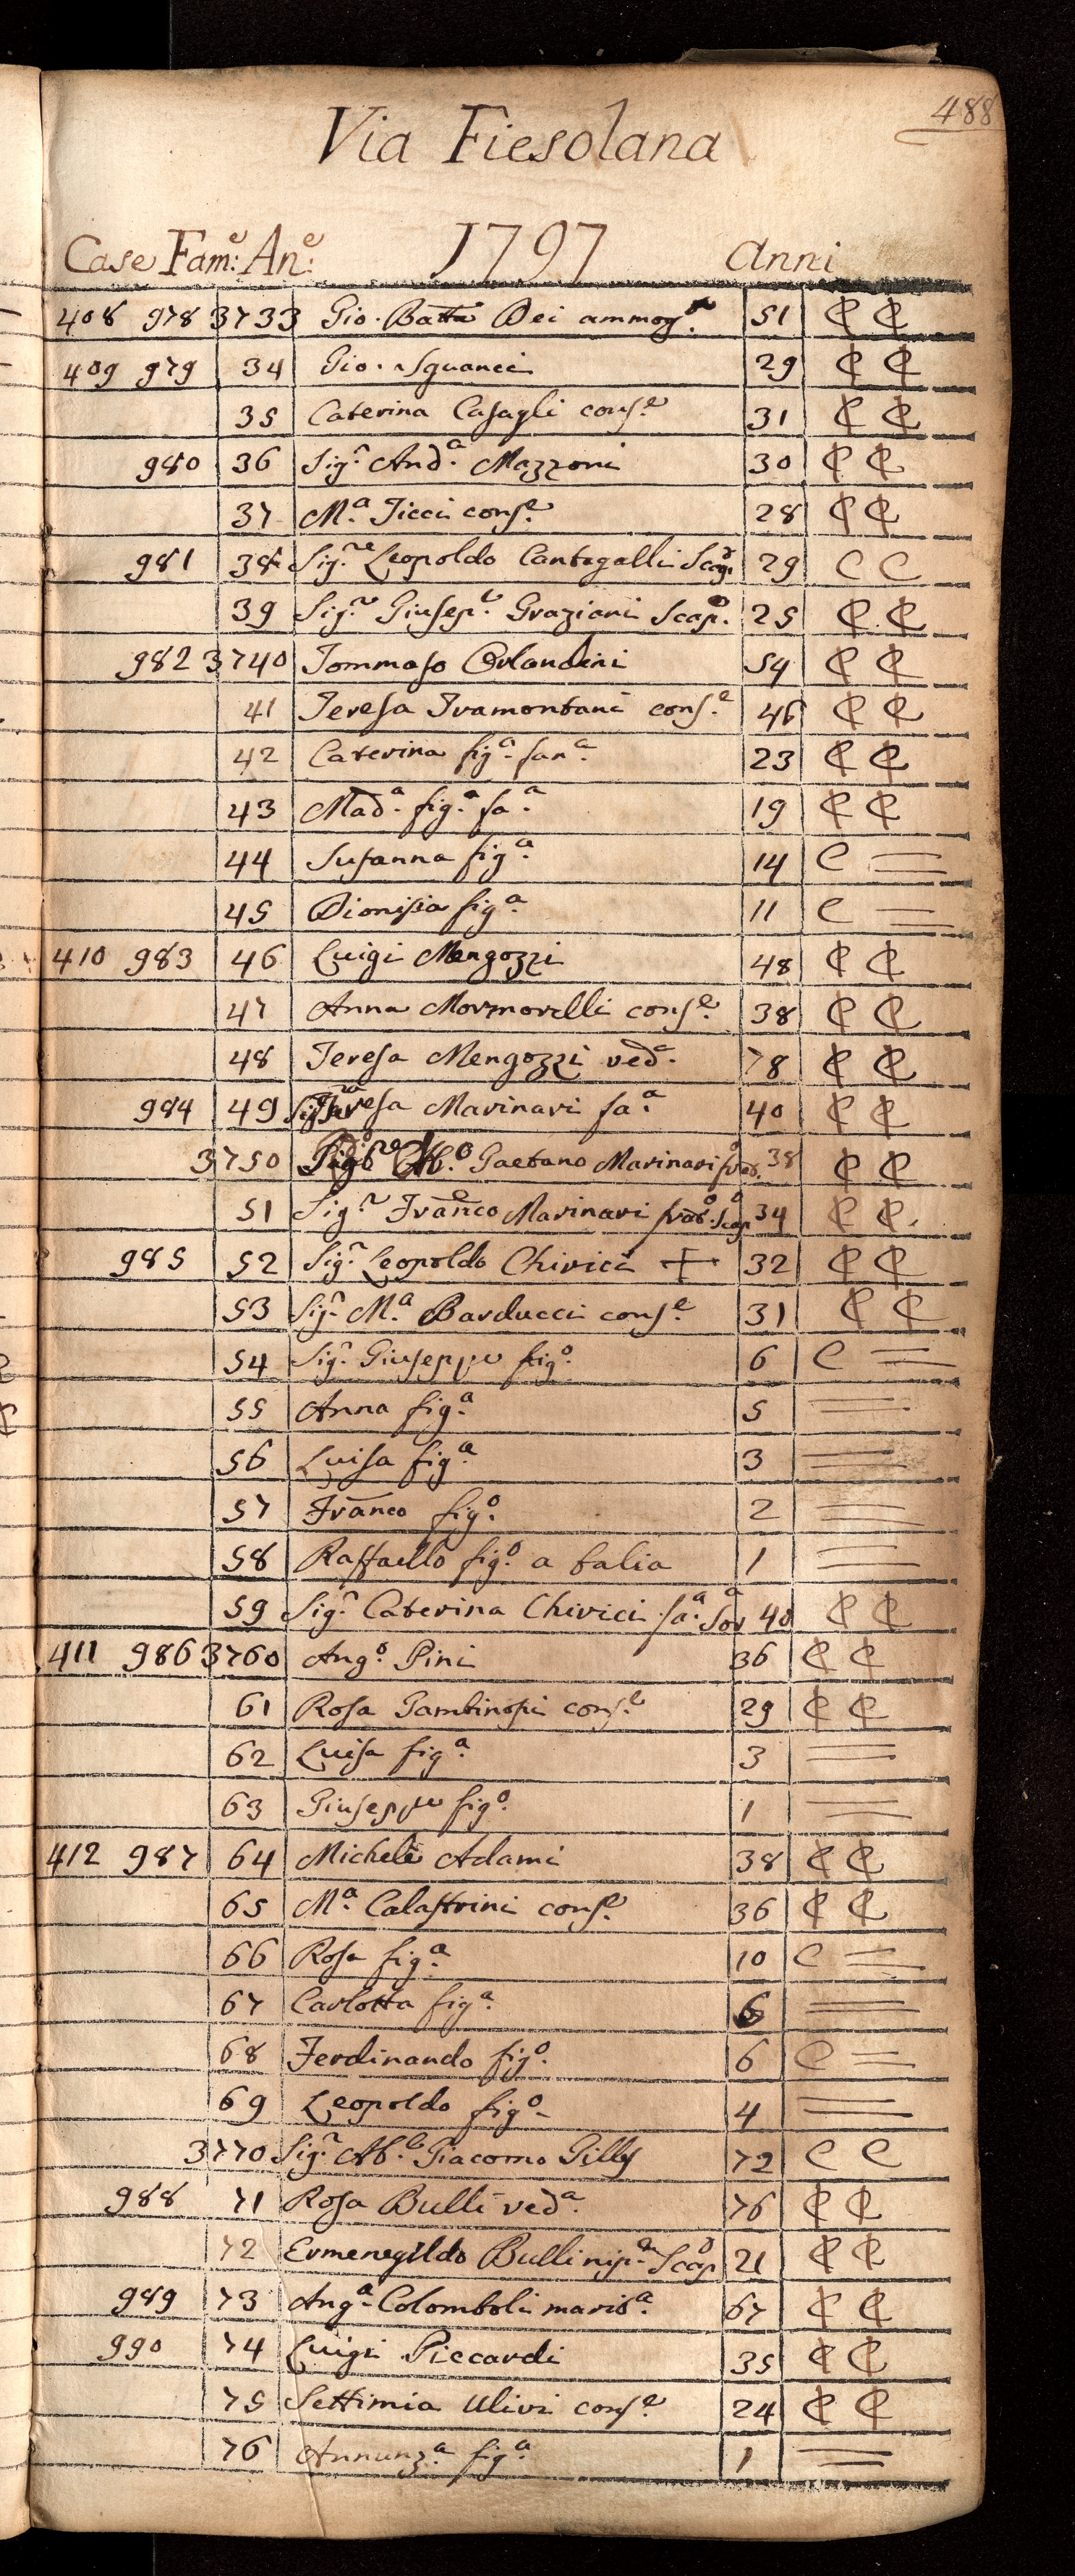 488
Via Fiesolana
1797
Case Fam:e An:e anni
408 978 3733 Gio. Batta Dei ammog.o 51 C C
409 979 34 Gio. Sguanci 29 C C
35 Caterina Casagli cons.e 31 C C
980 36 Sig.r And.a Mazzoni 30 C C
37 M.a Ticci cons.e 28 C C
981 38 Sig.re Leopoldo Cantagalli Scap.o 29 C C
39 Sig.r Giusep.e Graziani Scap.o 25 C C
982 3740 Tommaso Orlandini 54 C C
41 Teresa Tramontani cons.e 46 C C
42 Caterina fig.a fan.a 23 C C
43 Mad.a fig.a fa.a 19 C C
44 Susanna fig.a 14 C =
45 Dionisia fig.a 11 C =
410 983 46 Luigi Mengozzi 48 C C
47 Anna Mormorelli cons.e 38 C C
48 Teresa Mengozzi ved.a 78 C C
984 49 Teresa Marinari fa.a 40 C C
3750 Ab.o Gaetano Marinari 38 C C
51 Sig.r Franco Marinari Scap.o 34 C C
985 52 Sig.r Leopoldo Chirici + 32 C C
53 Sig.r M.a Barducci cons.e 31 C C
54 Sig.r Giuseppe fig.o 6 C =
55 Anna fig.a 5 =
56 Luisa fig.a 3 =
57 Franco fig.o 2 =
58 Raffaello fig.o a balia 1 =
59 Sig.r Caterina Chirici fa.a Sor.a 40 C C
411 986 3760 Ang.o Pini 36 C C
61 Rosa cons.e 29 C C
62 Luisa fig.a 3 =
63 Giuseppe fig.o 1 =
412 987 64 Michele Adami 38 C C
65 M.a Calastrini cons.e 36 C C
66 Rosa fig.a 10 C =
67 Carlotta fig.a 6 =
68 Ferdinando fig.o 6 C =
69 Leopoldo fig.o 4 =
3770 Sig.r Ab.e Giacomo Gilly 72 C C
988 71 Rosa Bulli ved.a 76 C C
72 Ermenegildo Bulli nip.e Scap.o 21 C C
989 73 Ang.a Colomboli marit.a 67 C C
990 74 Luigi Piccardi 35 C C
75 Settimia Ulivi cons.e 24 C C
76 Annunz.a fig.a 1 =